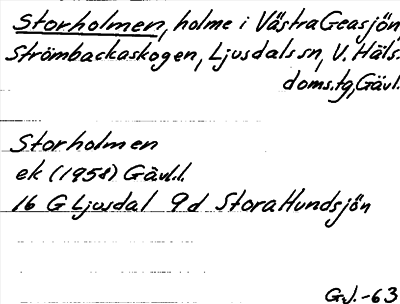 Storholmen, holme i Västra Geasjön,
Strömbackaskogen, Ljusdals sn, V. Häls.
doms.tg, Gävl.
Storholmen
ek (1958) Gävl.l.
16 G Ljusdal 9d Stora Hundsjön
G.J. -63